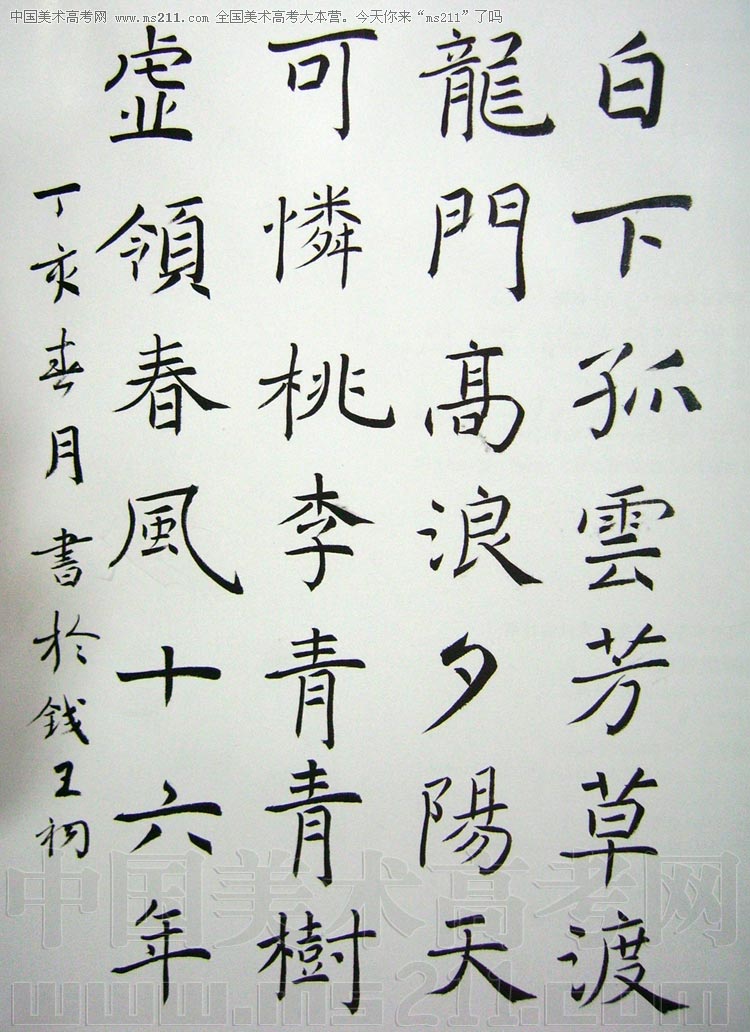 中国美术高考网 www.ms211.com 全国美术高考大本营。今天你来“ms211”了吗
白下孤雲芳草渡
龍門高浪夕陽天
可憐桃李青青樹
虚領春風十六年
丁亥春月書於錢王祠
中国美术高考网
www.ms211.com